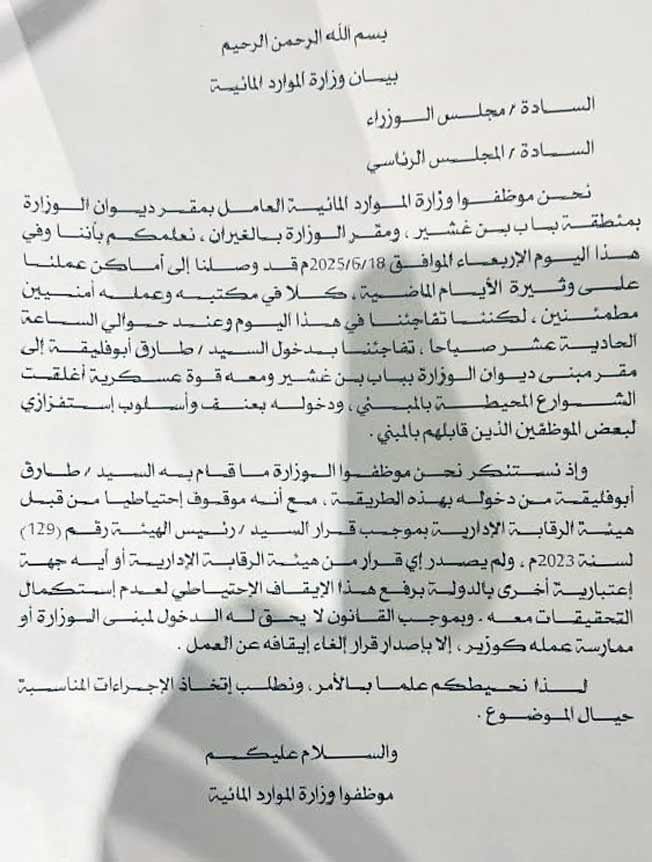 بسم الله الرحمن الرحيم
بيان وزارة الموارد المائية
السادة / مجلس الوزراء
السادة / المجلس الرئاسي
نحن موظفوا وزارة الموارد المائية العامل بمقر ديوان الوزارة
بمنطقة بباب بن غشير ، ومقر الوزارة بالغيران ، نعلمكم بأننا وفي
هذا اليوم الإربعاء الموافق 2025/6/18م قد وصلنا إلى أماكن عملنا
على وثيرة الأيام الماضية ، كلا في مكتبه وعمله أمنيين
مطمئنين ، لكننا تفاجئنا في هذا اليوم وعند حوالي الساعة
الحادية عشر صباحا ، تفاجئنا بدخول السيد / طارق أبوفليقة إلى
مقر مبنى ديوان الوزارة بباب بن غشير ومعه قوة عسكرية أغلقت
الشوارع المحيطة بالمبني ، ودخوله بعنف وأسلوب إستفزازي
لبعض الموظفين الذين قابلهم بالمبني .
وإذ نستنكر نحن موظفوا الوزارة ما قام به السيد / طارق
أبوفليقة من دخوله بهذه الطريقة ، مع أنه موقوف إحتياطيا من قبل
هيئة الرقابة الإدارية بموجب قرار السيد / رئيس الهيئة رقم (129)
لسنة 2023م ، ولم يصدر إي قرار من هيئة الرقابة الإدارية أو أيه جهة
إعتبارية أخرى بالدولة برفع هذا الايقاف الإحتياطي لعدم إستكمال
التحقيقات معه . وبموجب القانون لا يحق له الدخول لمبنى الوزارة أو
ممارسة عمله كوزير ، إلا بإصدار قرار إلغاء إيقافه عن العمل .
لذا نحيطكم علما بالأمر، ونطلب إتخاذ الإجراءات المناسبة
حيال الموضوع .
والسلام عليكم
موظفوا وزارة الموارد المائية